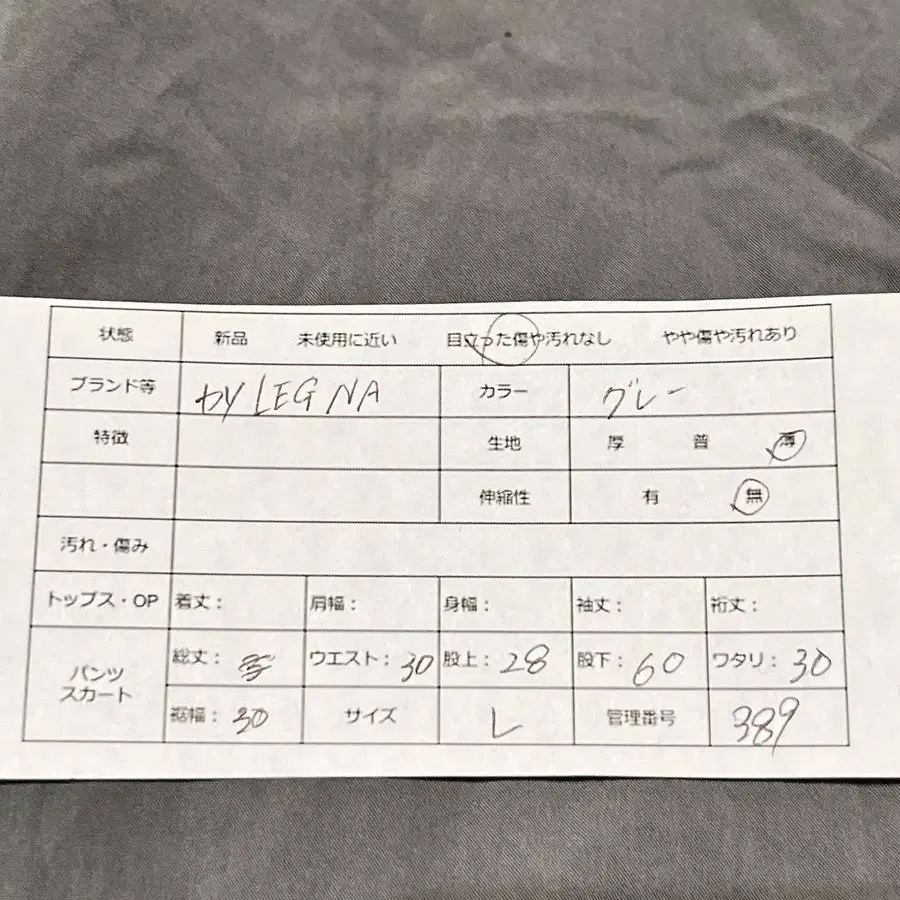 状態 新品 未使用に近い 目立った傷や汚れなし やや傷や汚れあり
ブランド等 by LEGNA カラー グレー
特徴 生地 厚 普 薄
伸縮性 有 無
汚れ・傷み
トップス・OP 着丈： 肩幅： 身幅： 袖丈： 裄丈：
パンツ
スカート
総丈： ウエスト：30 股上：28 股下：60 ワタリ：30
裾幅：30 サイズ L 管理番号 389